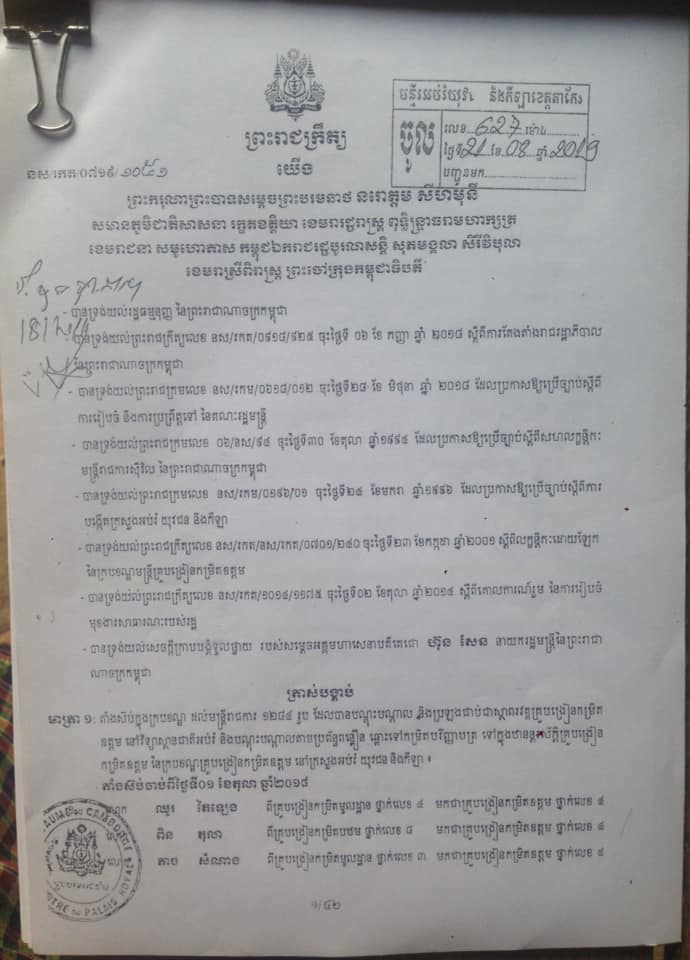 មន្ទីរអប់រំយុវ. និងកីឡាខេត្តតាកែវ
ចូល
លេខ 627 ម៉ោង
ថ្ងៃទី 21 ខែ 08 ឆ្នាំ 2019
បញ្ជូនមក
ព្រះរាជក្រឹត្យ
នស/រកត/០៧១៩/១០៥១
យើង
ព្រះករុណាព្រះបាទសម្តេចព្រះបរមនាថ នរោត្តម សីហមុនី
សមានភូមិជាតិសាសនា រក្ខតខត្តិយា ខេមរារដ្ឋរាស្ត្រ ពុទ្ធិន្ទ្រាធរាមហាក្សត្រ
ខេមរាជនា សមូហោភាស កម្ពុជឯករាជរដ្ឋបូរណសន្តិ សុភមង្គលា សិរីវិបុលា
ខេមរាស្រីពិរាស្ត្រ ព្រះចៅក្រុងកម្ពុជាធិបតី
- បានទ្រង់យល់រដ្ឋធម្មនុញ្ញ នៃព្រះរាជាណាចក្រកម្ពុជា
- បានទ្រង់យល់ព្រះរាជក្រឹត្យលេខ នស/រកត/០៩១៨/៩២៥ ចុះថ្ងៃទី ០៦ ខែ កញ្ញា ឆ្នាំ ២០១៨ ស្តីពីការតែងតាំងរាជរដ្ឋាភិបាល
នៃព្រះរាជាណាចក្រកម្ពុជា
- បានទ្រង់យល់ព្រះរាជក្រមលេខ នស/រកម/០៦១៨/០១២ ចុះថ្ងៃទី២៨ ខែ មិថុនា ឆ្នាំ ២០១៨ ដែលប្រកាសឱ្យប្រើច្បាប់ស្តីពី
ការរៀបចំ និងការប្រព្រឹត្តទៅ នៃគណៈរដ្ឋមន្ត្រី
- បានទ្រង់យល់ព្រះរាជក្រមលេខ ០៦/នស/៩៤ ចុះថ្ងៃទី៣០ ខែតុលា ឆ្នាំ១៩៩៤ ដែលប្រកាសឱ្យប្រើច្បាប់ស្តីពីសហលក្ខន្តិកៈ
មន្ត្រីរាជការស៊ីវិល នៃព្រះរាជាណាចក្រកម្ពុជា
- បានទ្រង់យល់ព្រះរាជក្រមលេខ នស/រកម/០១៩៦/០១ ចុះថ្ងៃទី២៤ ខែមករា ឆ្នាំ១៩៩៦ ដែលប្រកាសឱ្យប្រើច្បាប់ស្តីពីការ
បង្កើតក្រសួងអប់រំ យុវជន និងកីឡា
- បានទ្រង់យល់ព្រះរាជក្រឹត្យលេខ នស/រកត/នស/រកត/០៧០១/២៤០ ចុះថ្ងៃទី២៣ ខែកក្កដា ឆ្នាំ២០០១ ស្តីពីលក្ខន្តិកៈដោយឡែក
នៃក្របខណ្ឌមន្ត្រីគ្រូបង្រៀនកម្រិតឧត្តម
- បានទ្រង់យល់ព្រះរាជក្រឹត្យលេខ នស/រកត/១០១៤/១១៧៥ ចុះថ្ងៃទី០២ ខែតុលា ឆ្នាំ២០១៤ ស្តីពីគោលការណ៍រួម នៃការរៀបចំ
មុខងារសាធារណៈរបស់រដ្ឋ
- បានទ្រង់យល់សេចក្តីក្រាបបង្គំទូលថ្វាយ របស់សម្តេចអគ្គមហាសេនាបតីតេជោ ហ៊ុន សែន នាយករដ្ឋមន្ត្រីនៃព្រះរាជា
ណាចក្រកម្ពុជា
ត្រាស់បង្គាប់
មាត្រា ១: តាំងស៊ប់ក្នុងក្របខណ្ឌ ដល់មន្ត្រីរាជការ ១២៨៤ រូប ដែលបានបណ្តុះបណ្តាល និងប្រឡងជាប់ជាស្ថាពរវគ្គគ្រូបង្រៀនកម្រិត
ឧត្តម នៅវិទ្យាស្ថានជាតិអប់រំ និងបណ្តុះបណ្តាលតាមប្រព័ន្ធពន្លឿន ឆ្ពោះទៅកម្រិតបរិញ្ញាបត្រ ទៅក្នុងឋានន្តរស័ក្តិគ្រូបង្រៀន
កម្រិតឧត្តម នៃក្របខណ្ឌគ្រូបង្រៀនកម្រិតឧត្តម នៅក្រសួងអប់រំ យុវជន និងកីឡា ៖
តាំងស៊ប់ចាប់ពីថ្ងៃទី០១ ខែតុលា ឆ្នាំ២០១៨
ឈុរ តៃឡេង ពីគ្រូបង្រៀនកម្រិតមូលដ្ឋាន ថ្នាក់លេខ ៤ មកជាគ្រូបង្រៀនកម្រិតឧត្តម ថ្នាក់លេខ ៤
ពិន តុលា ពីគ្រូបង្រៀនកម្រិតបឋម ថ្នាក់លេខ ៨ មកជាគ្រូបង្រៀនកម្រិតឧត្តម ថ្នាក់លេខ ៤
តាច សំណាង ពីគ្រូបង្រៀនកម្រិតមូលដ្ឋាន ថ្នាក់លេខ ៣ មកជាគ្រូបង្រៀនកម្រិតឧត្តម ថ្នាក់លេខ ៤
១/៤២